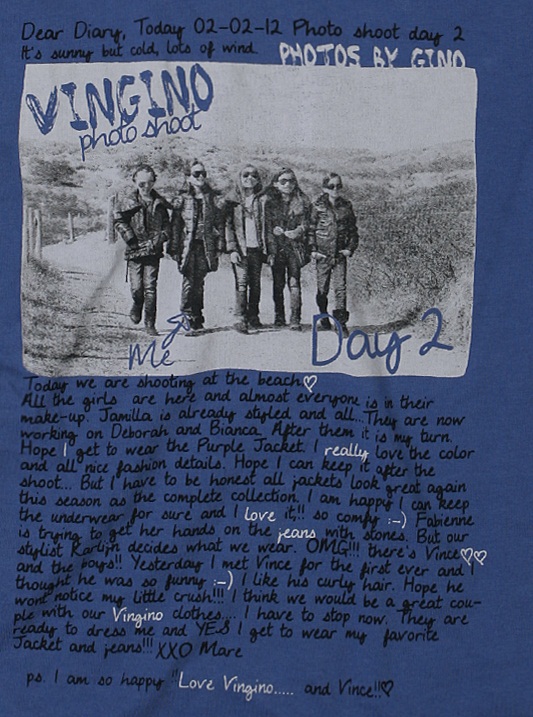 Dear Diary, Today 02-02-12 Photo shoot day 2
It's sunny but cold, lots of wind. PHOTOS BY GINO
VINGINO
photo shoot
Me
Day 2
Today we are shooting at the beach♡
All the girls are here and almost everyone is in their
make-up. Jamilla is already styled and all...They are now
working on Deborah and Bianca. After them it is my turn.
Hope I get to wear the Purple Jacket. I really love the color
and all nice fashion details. Hope I can keep it after the
shoot... But I have to be honest all jackets look great again
this season as the complete collection. I am happy I can keep
the underwear for sure and I love it,!! so comfy :-) Fabienne
is trying to get her hands on the jeans with stones. But our
stylist Karlijn decides what we wear. OMG!!! there's Vince♡♡
and the boys!! Yesterday I met Vince for the first ever and I
thought he was so funny :-) I like his curly hair. Hope he
wont notice my little crush!!! I think we would be a great cou-
ple with our Vingino clothes.... I have to stop now. They are
ready to dress me and YES I get to wear my favorite
Jacket and jeans!!! XXO Mare
ps. I am so happy "Love Vingino..... and Vince!!♡